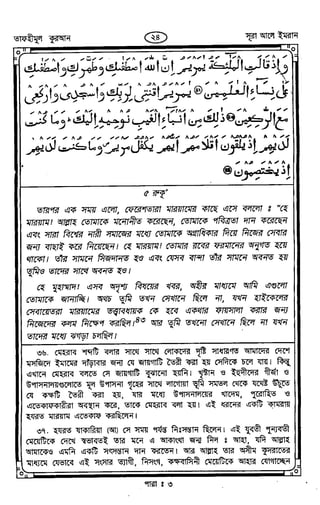 তাফহীমুল কুরআন
২৪
সূরা আলে ইমরান
وَإِذْ قَالَتِ الْمَلٰٓئِكَةُ يٰمَرْيَمُ إِنَّ اللهَ اصْطَفٰىكِ وَطَهَّرَكِ وَاصْطَفٰىكِ
عَلٰى نِسَآءِ الْعٰلَمِيْنَ ۝ يٰمَرْيَمُ اقْنُتِىْ لِرَبِّكِ وَاسْجُدِىْ وَارْكَعِىْ
مَعَ الرّٰكِعِيْنَ ۝ ذٰلِكَ مِنْ اَنْبَآءِ الْغَيْبِ نُوْحِيْهِ اِلَيْكَ ۚ وَمَا كُنْتَ
لَدَيْهِمْ اِذْ يُلْقُوْنَ اَقْلَامَهُمْ اَيُّهُمْ يَكْفُلُ مَرْيَمَ ۪ وَمَا كُنْتَ لَدَيْهِمْ
اِذْ يَخْتَصِمُوْنَ ۝
৫ রুকূ'
তারপর এক সময় এলো, ফেরেশতারা মারয়ামের কাছে এসে বললো : "হে
মারয়াম! আল্লাহ তোমাকে মনোনীত করেছেন, তোমাকে পবিত্রতা দান করেছেন
এবং সারা বিশ্বের নারী সমাজের মধ্যে তোমাকে অগ্রাধিকার দিয়ে নিজের সেবার
জন্য বাছাই করে নিয়েছেন। হে মারয়াম! তোমার রবের ফরমানের অনুগত হয়ে
থাকো। তাঁর সামনে সিজদানত হও এবং যেসব বান্দা তাঁর সামনে অবনত হয়
তুমিও তাদের সাথে অবনত হও।
হে মুহাম্মাদ! এসব অদৃশ্য বিষয়ের খবর, অহীর মাধ্যমে আমি এগুলো
তোমাকে জানাচ্ছি। অথচ তুমি তখন সেখানে ছিলে না, যখন হাইকেলের
সেবায়েতরা মারয়ামের তত্ত্বাবধায়ক কে হবে একথার ফায়সালা করার জন্য
নিজেদের কলম নিক্ষেপ করছিল।৪৩ আর তুমি তখনো সেখানে ছিলে না যখন
তাদের মধ্যে ঝগড়া চলছিল।
৩৬. মেহরাব শব্দটি বলার সাথে সাথে লোকদের দৃষ্টি সাধারণত আমাদের দেশে
মসজিদে ইমামের দাঁড়াবার জন্য যে জায়গাটি তৈরী করা হয় সেদিকে চলে যায়। কিন্তু
এখানে মেহরাব বলতে সে জায়গাটি বুঝানো হয়নি। খৃস্টান ও ইহুদীদের গীর্জা ও
উপাসনালয়গুলোতে মূল উপাসনা গৃহের সাথে লাগোয়া ভূমি সমতল থেকে যথেষ্ট উঁচুতে
যে কক্ষটি তৈরী করা হয়, যার মধ্যে উপাসনালয়ের খাদেম, পুরোহিত ও
এতেকাফকারীরা অবস্থান করে, তাকে মেহরাব বলা হয়। এই ধরনের একটি কামরায়
হযরত মারয়াম এতেকাফ করছিলেন।
৩৭. হযরত যাকারিয়া (আ) সে সময় পর্যন্ত নিঃসন্তান ছিলেন। এই যুবতী পুণ্যবতী
মেয়েটিকে দেখে স্বভাবতই তার মনে এ আকাংখা জন্ম নিল : আহা, যদি আল্লাহ
আমাকেও এমনি একটি সৎসন্তান দান করতেন। আর আল্লাহ তার অসীম কুদরাতের
মাধ্যমে যেভাবে এই সংসার ত্যাগী, নিসংগ, কক্ষবাসিনী মেয়েটিকে আহার যোগাচ্ছেন
পারা : ৩